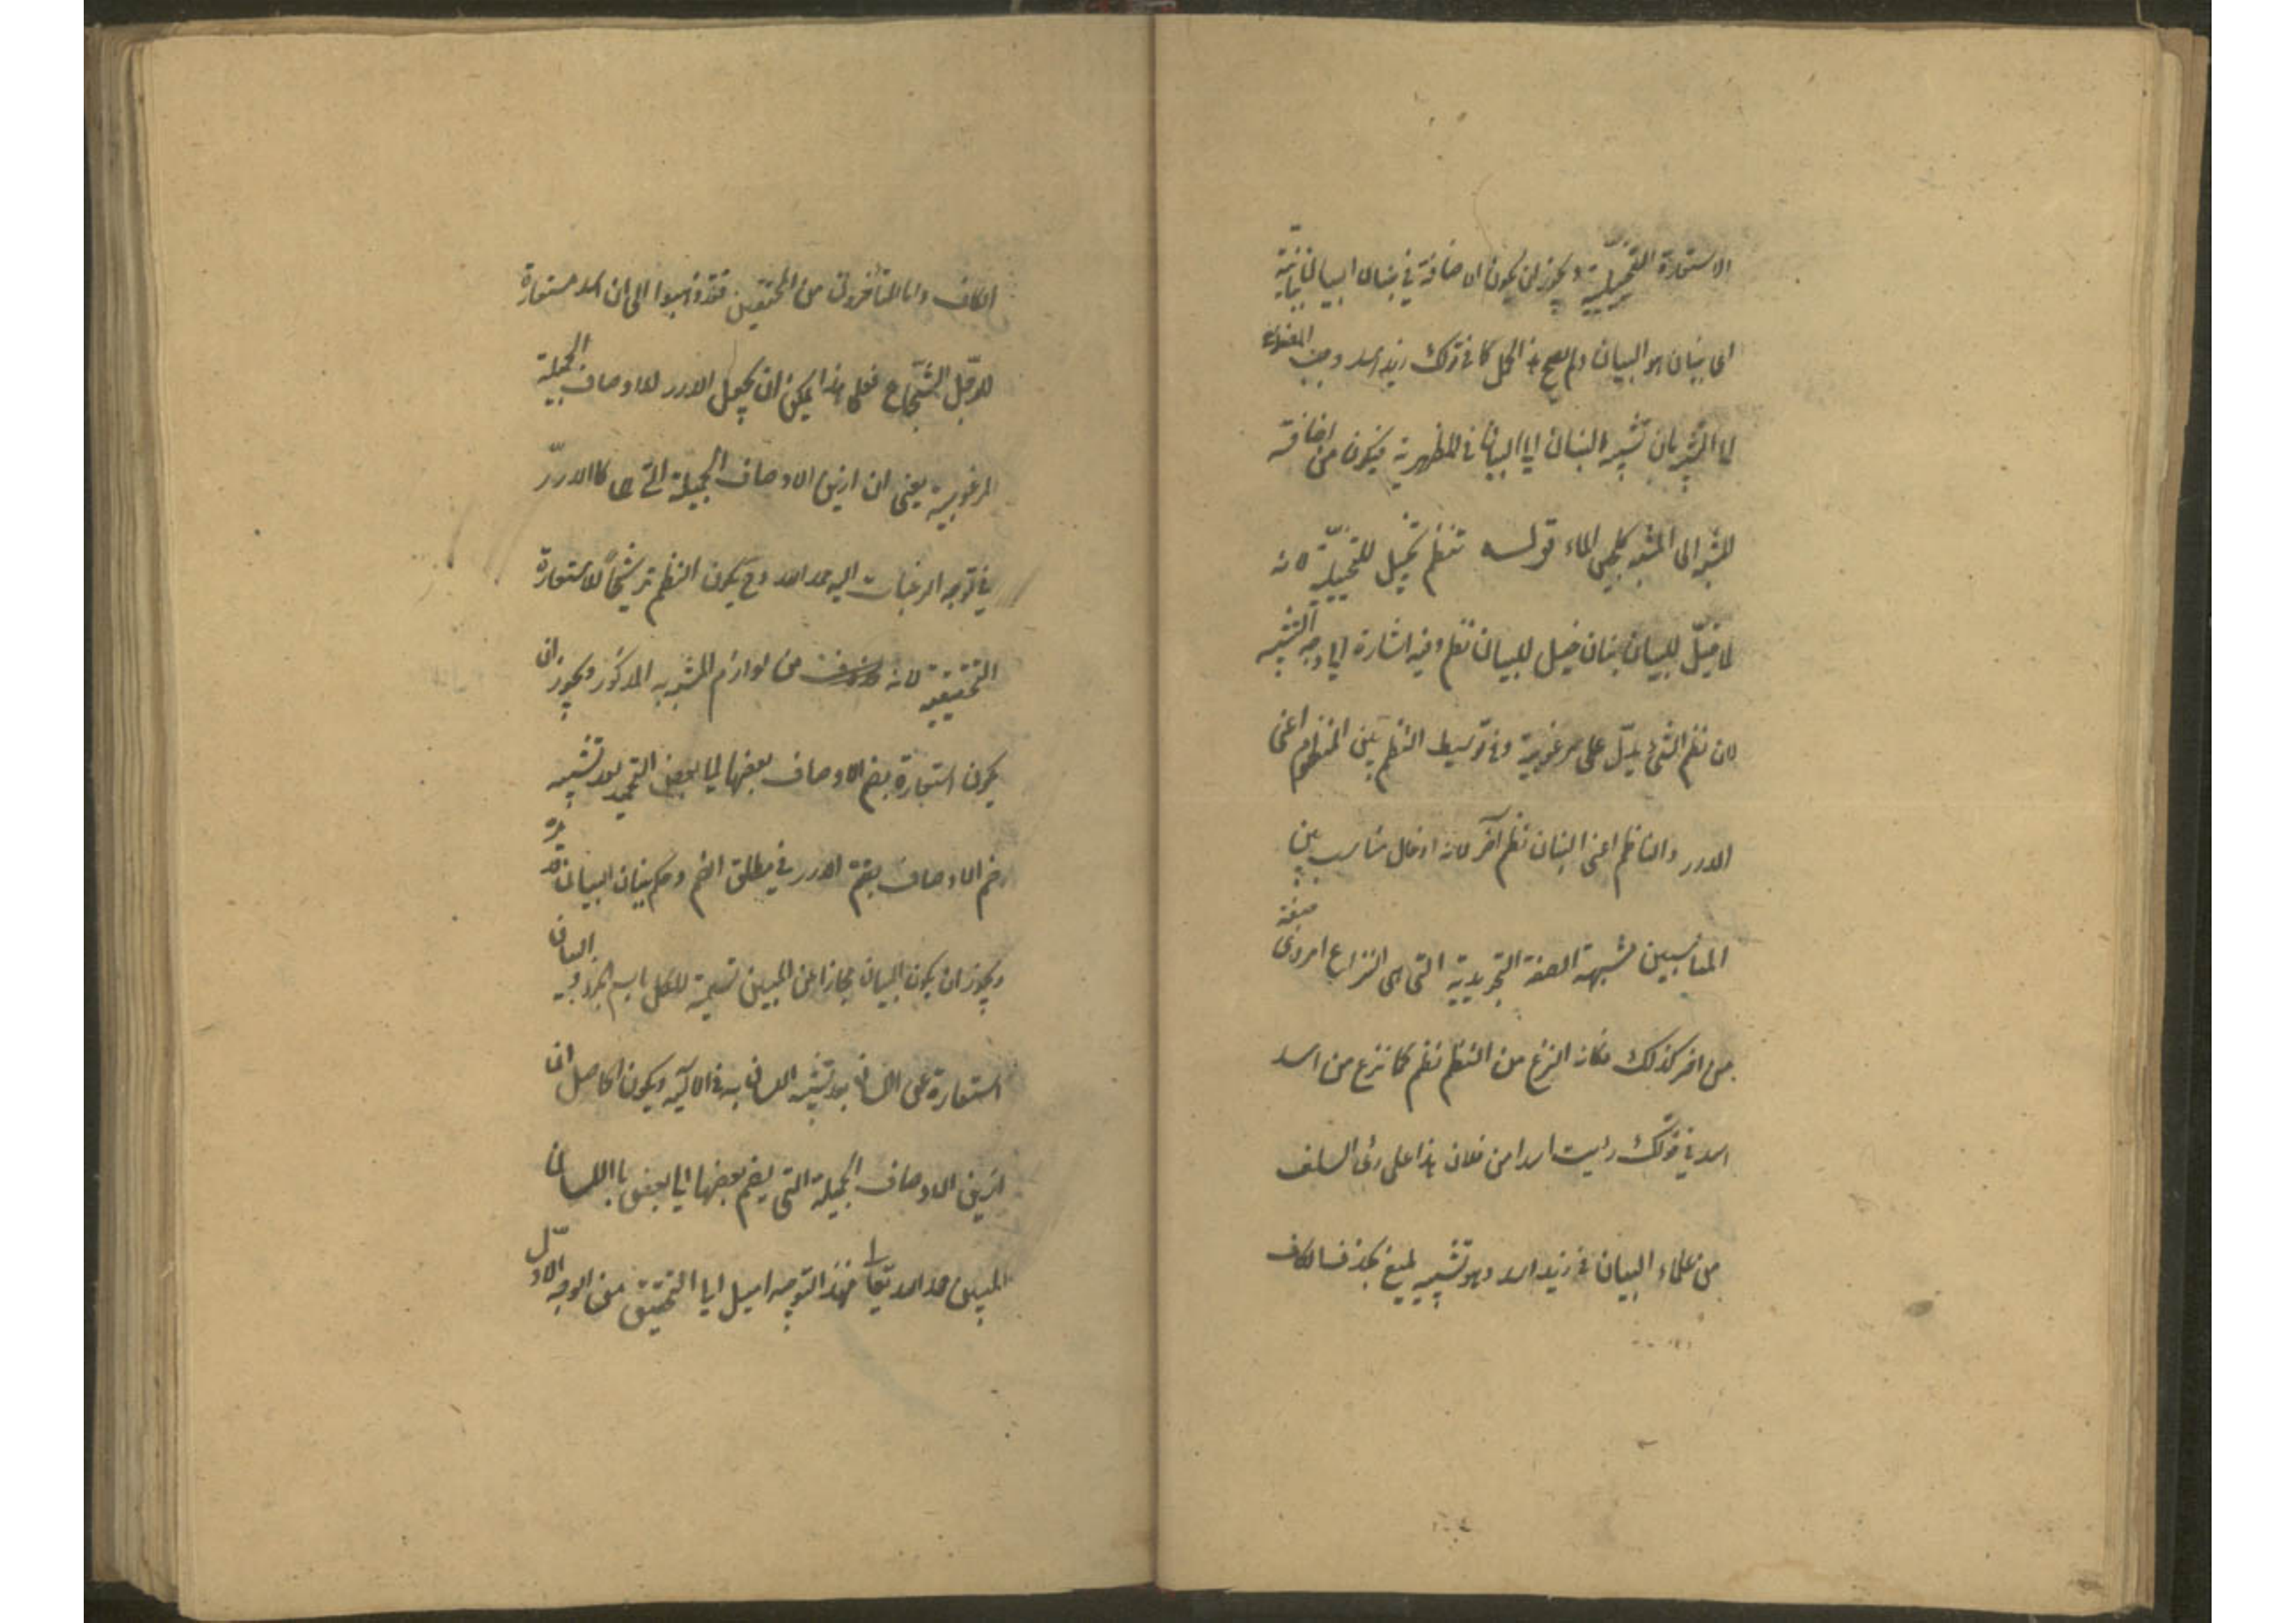 الاستعارة التخييلية ويجوز ان يكون الاضافة في بنان البيان بيانية
اى بنان هو البيان ولم يصح هذا الحمل كما في قولك زيد اسد وجب
لما المشبه بان تشبه البنان الى البيان في المظهرية فيكون من اضافة
المشبه الى المشبه به كلجين الماء قوله تنظم تخييل للتخييلية لانه
لما خيّل للبيان بنان خيل للبيان نظم وفيه اشارة الى وجه التشبيه
لان نظم الشئ يدلّ على مرغوبية وفي توسيط النظم بين المنظوم اعنى
الدرر والناظم اعنى البنان نظم آخر لانه ادخال مناسب بين
المناسبين مشبهة الصفة التجريدية التى هى انتزاع امر ذى صفة
من اخر كذلك فكانه انتزع من النظم نظم كما نزع من اسد
اسد في قولك رايت اسدا من فلان هذا على رأى السلف
من علماء البيان في زيد اسد وهو تشبيه بليغ بحذف الكاف
الكاف واما المتأخرون من المحققين فقد ذهبوا الى ان اسد مستعارة
للرجل الشجاع فعلى هذا يمكن ان يجعل الدرر للاوصاف الجميلة
المرغوبية يعنى ان ازين الاوصاف الجميلة التى هى كالدرر
في توجه الرغبات اليه حمد الله وح يكون النظم ترشيحاً للاستعارة
التحقيقية لانه من لوازم المشبه به المذكور ويجوز ان
يكون استعارة بضم الاوصاف بعضها الى بعض التحميد بعد تشبيه
ضم الاوصاف بضم الدرر في مطلق الضم وحكم بنان البيان قد مر
ويجوز ان يكون البيان مجازا عن المبين تسمية للكل باسم الجزء
استعارة على اللسان بعد تشبيه اللسان به في الآلية ويكون الحاصل ان
ازين الاوصاف الجميلة التى يضم بعضها الى بعض باللسان
المبين حمد الله تعالى فهذا التوجيه اميل الى التحقيق من الوجه الاوّل